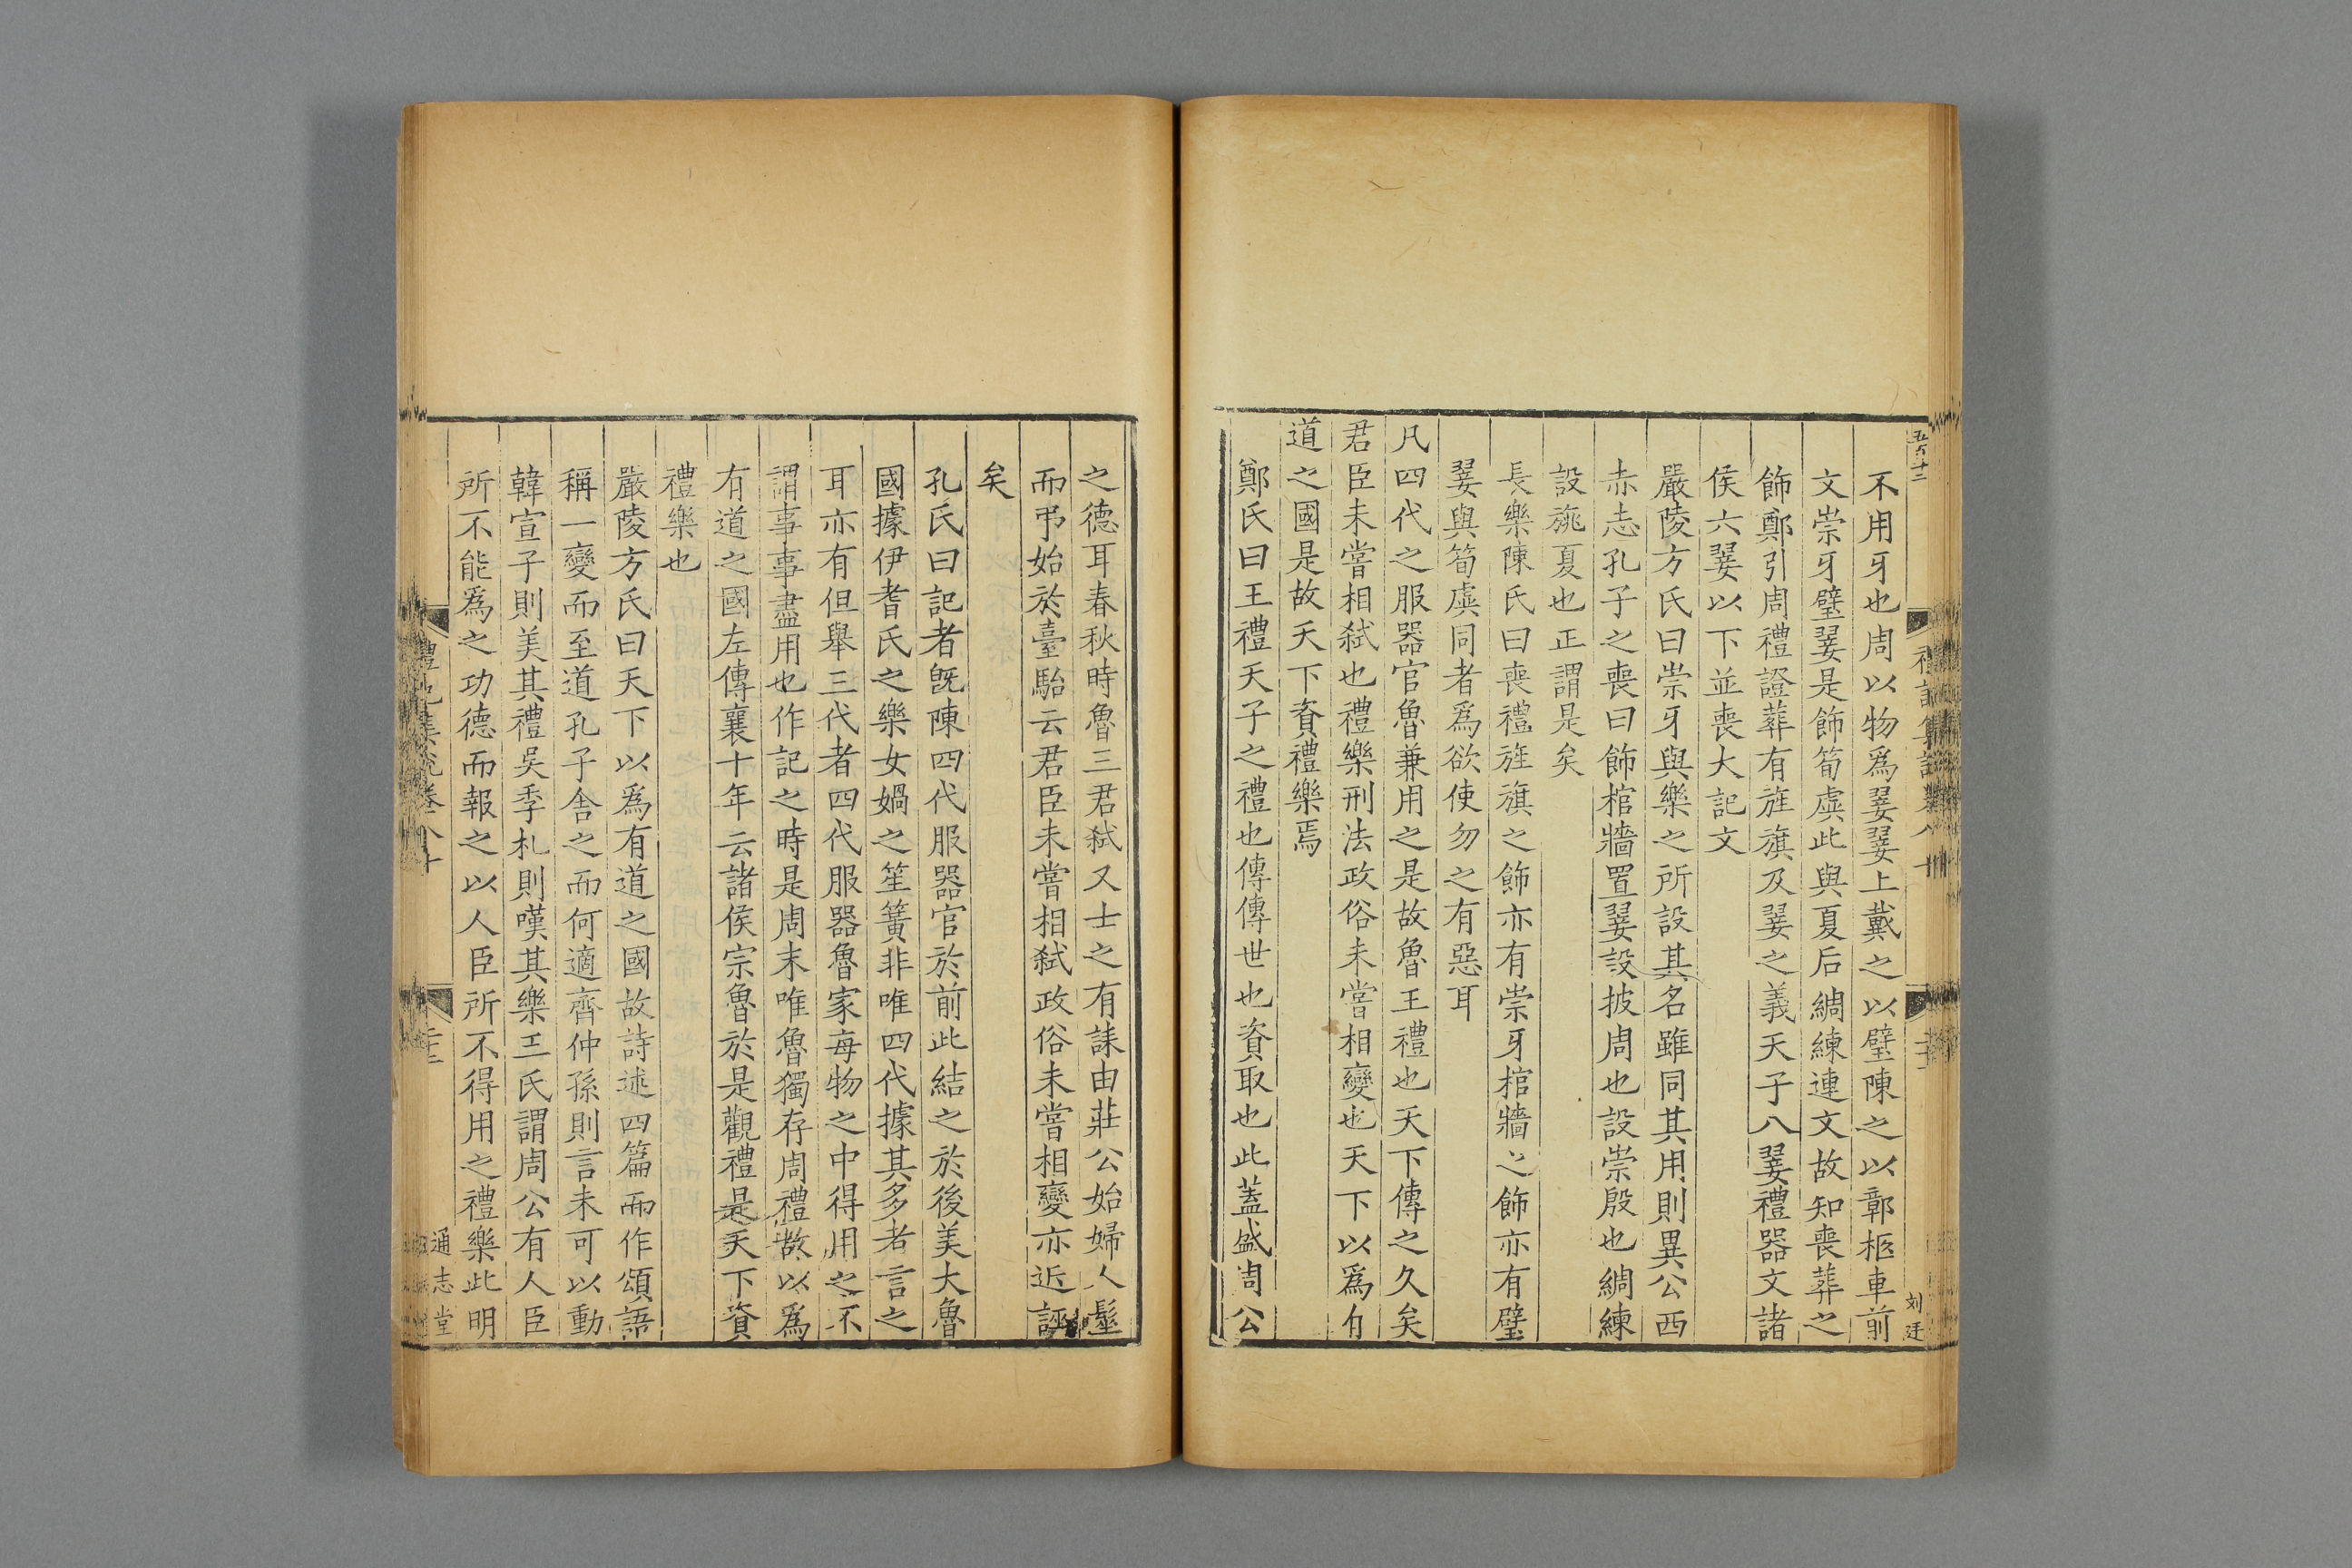 不用牙也周以物爲翣翣上戴之以璧陳之以鄣柩車前
文崇牙璧翣是飾筍虡此與夏后綢練連文故知喪葬之
飾鄭引周禮證葬有旌旗及翣之義天子八翣禮器文諸
侯六翣以下並喪大記文
嚴陵方氏曰崇牙與樂之所設其名雖同其用則異公西
赤志孔子之喪曰飾棺牆置翣設披周也設崇殷也綢練
設旐夏也正謂是矣
長樂陳氏曰喪禮旌旗之飾亦有崇牙棺牆之飾亦有璧
翣與筍虡同者爲欲使勿之有惡耳
凡四代之服器官魯兼用之是故魯王禮也天下傳之久矣
君臣未嘗相弑也禮樂刑法政俗未嘗相變也天下以爲有
道之國是故天下資禮樂焉
鄭氏曰王禮天子之禮也傳傳世也資取也此蓋盛周公
之德耳春秋時魯三君弑又士之有誄由莊公始婦人髽
而弔始於臺駘云君臣未嘗相弑政俗未嘗相變亦近誣
矣
孔氏曰記者旣陳四代服器官於前此結之於後美大魯
國據伊耆氏之樂女媧之笙簧非唯四代據其多者言之
耳亦有但舉三代者四代服器魯家每物之中得用之不
謂事事盡用也作記之時是周末唯魯獨存周禮故以爲
有道之國左傳襄十年云諸侯宋魯於是觀禮是天下資
禮樂也
嚴陵方氏曰天下以爲有道之國故詩述四篇而作頌語
稱一變而至道孔子舍之而何適齊仲孫則言未可以動
韓宣子則美其禮吳季札則嘆其樂王氏謂周公有人臣
所不能爲之功德而報之以人臣所不得用之禮樂此明
通志堂